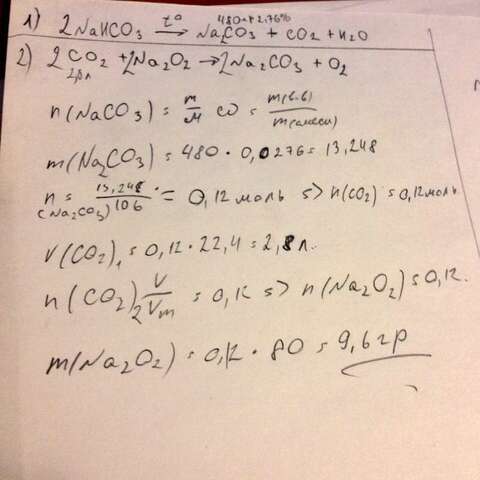 480 гр 2.76%
1) 2NaHCO3 t° → Na2CO3 + CO2 + H2O
2) 2CO2 + 2Na2O2 → 2Na2CO3 + O2
n(NaCO3) = m/M ω = m(в-в)/m(смеси)
m(Na2CO3) = 480 · 0,0276 = 13,248
n(Na2CO3) = 13,248/106 = 0,12 моль => n(CO2) = 0,12 моль
V(CO2)1 = 0,12 · 22,4 = 2,8 л.
n(CO2)2 V/Vm = 0,12 => n(Na2O2) = 0,12.
m(Na2O2) = 0,12 · 80 = 9,6 гр